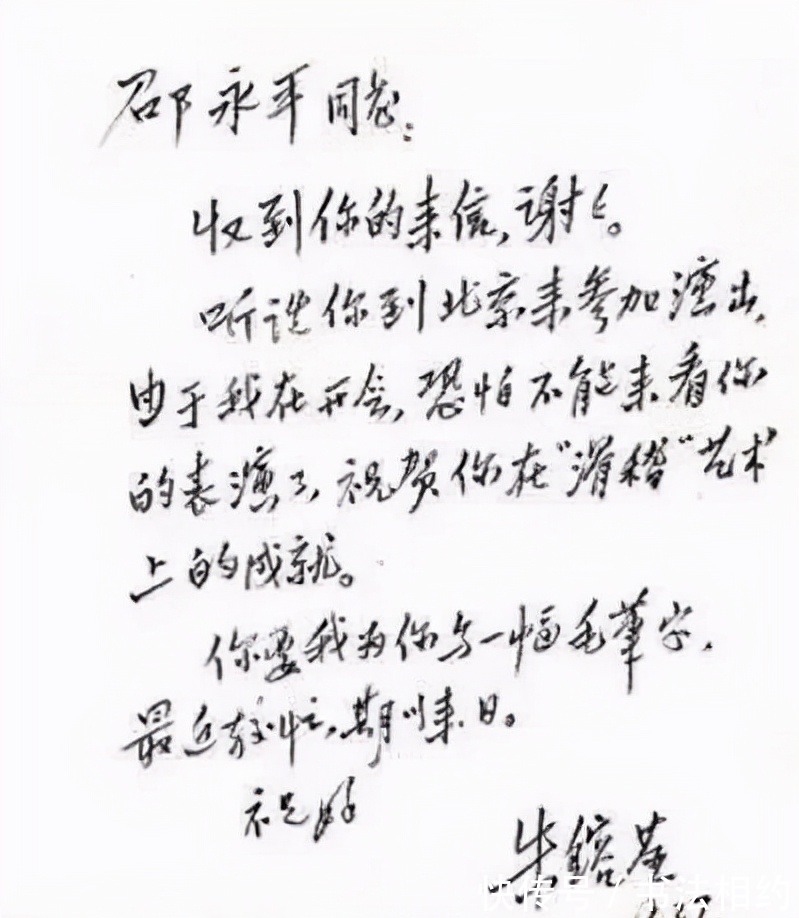 邵永平同志:
收到你的来信,谢々。
听说你到北京来参加演出,
由于我在开会,恐怕不能来看你
的表演了,祝贺你在"滑稽"艺术
上的成就。
你要我为你写一幅毛筆字,
最近较忙,期以来日。
祝好
朱鎔基
快传号 / 书法相约